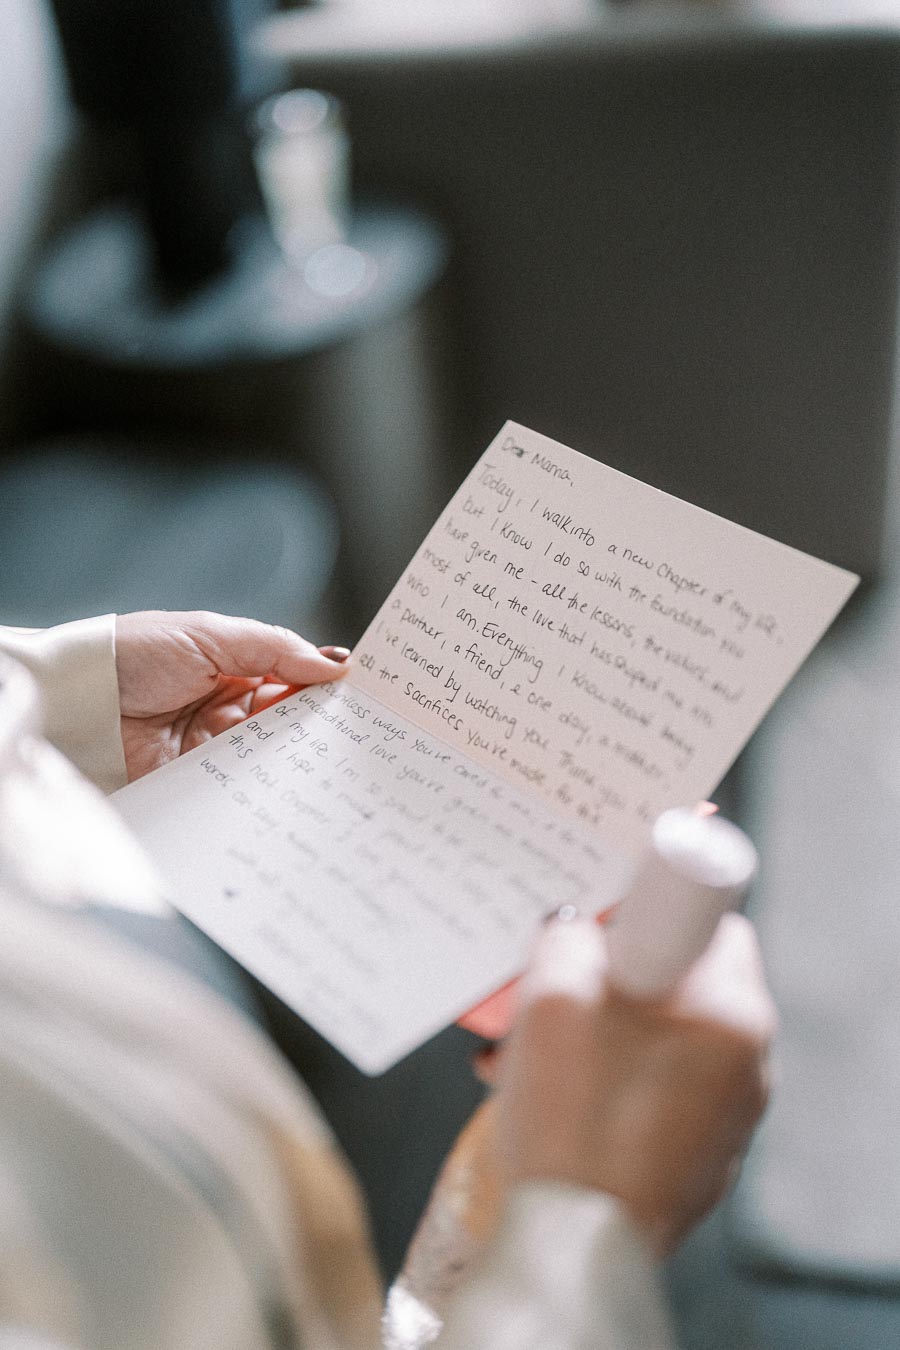 Dear Mama,
Today, I walk into a new Chapter of my life,
but I know I do so with the foundation you
have given me - all the lessons, the values, and
most of all, the love that has shaped me into
who I am. Everything I know about being
a partner, a friend, & one day, a mother,
I've learned by watching you. Thank you for
all the sacrifices you've made, for the
countless ways you've cared for me, & for the
unconditional love you've given me every
of my life. I'm so proud to be your
and I hope to make you proud as I
this next chapter. I love you more than
words can say, mama
with all my